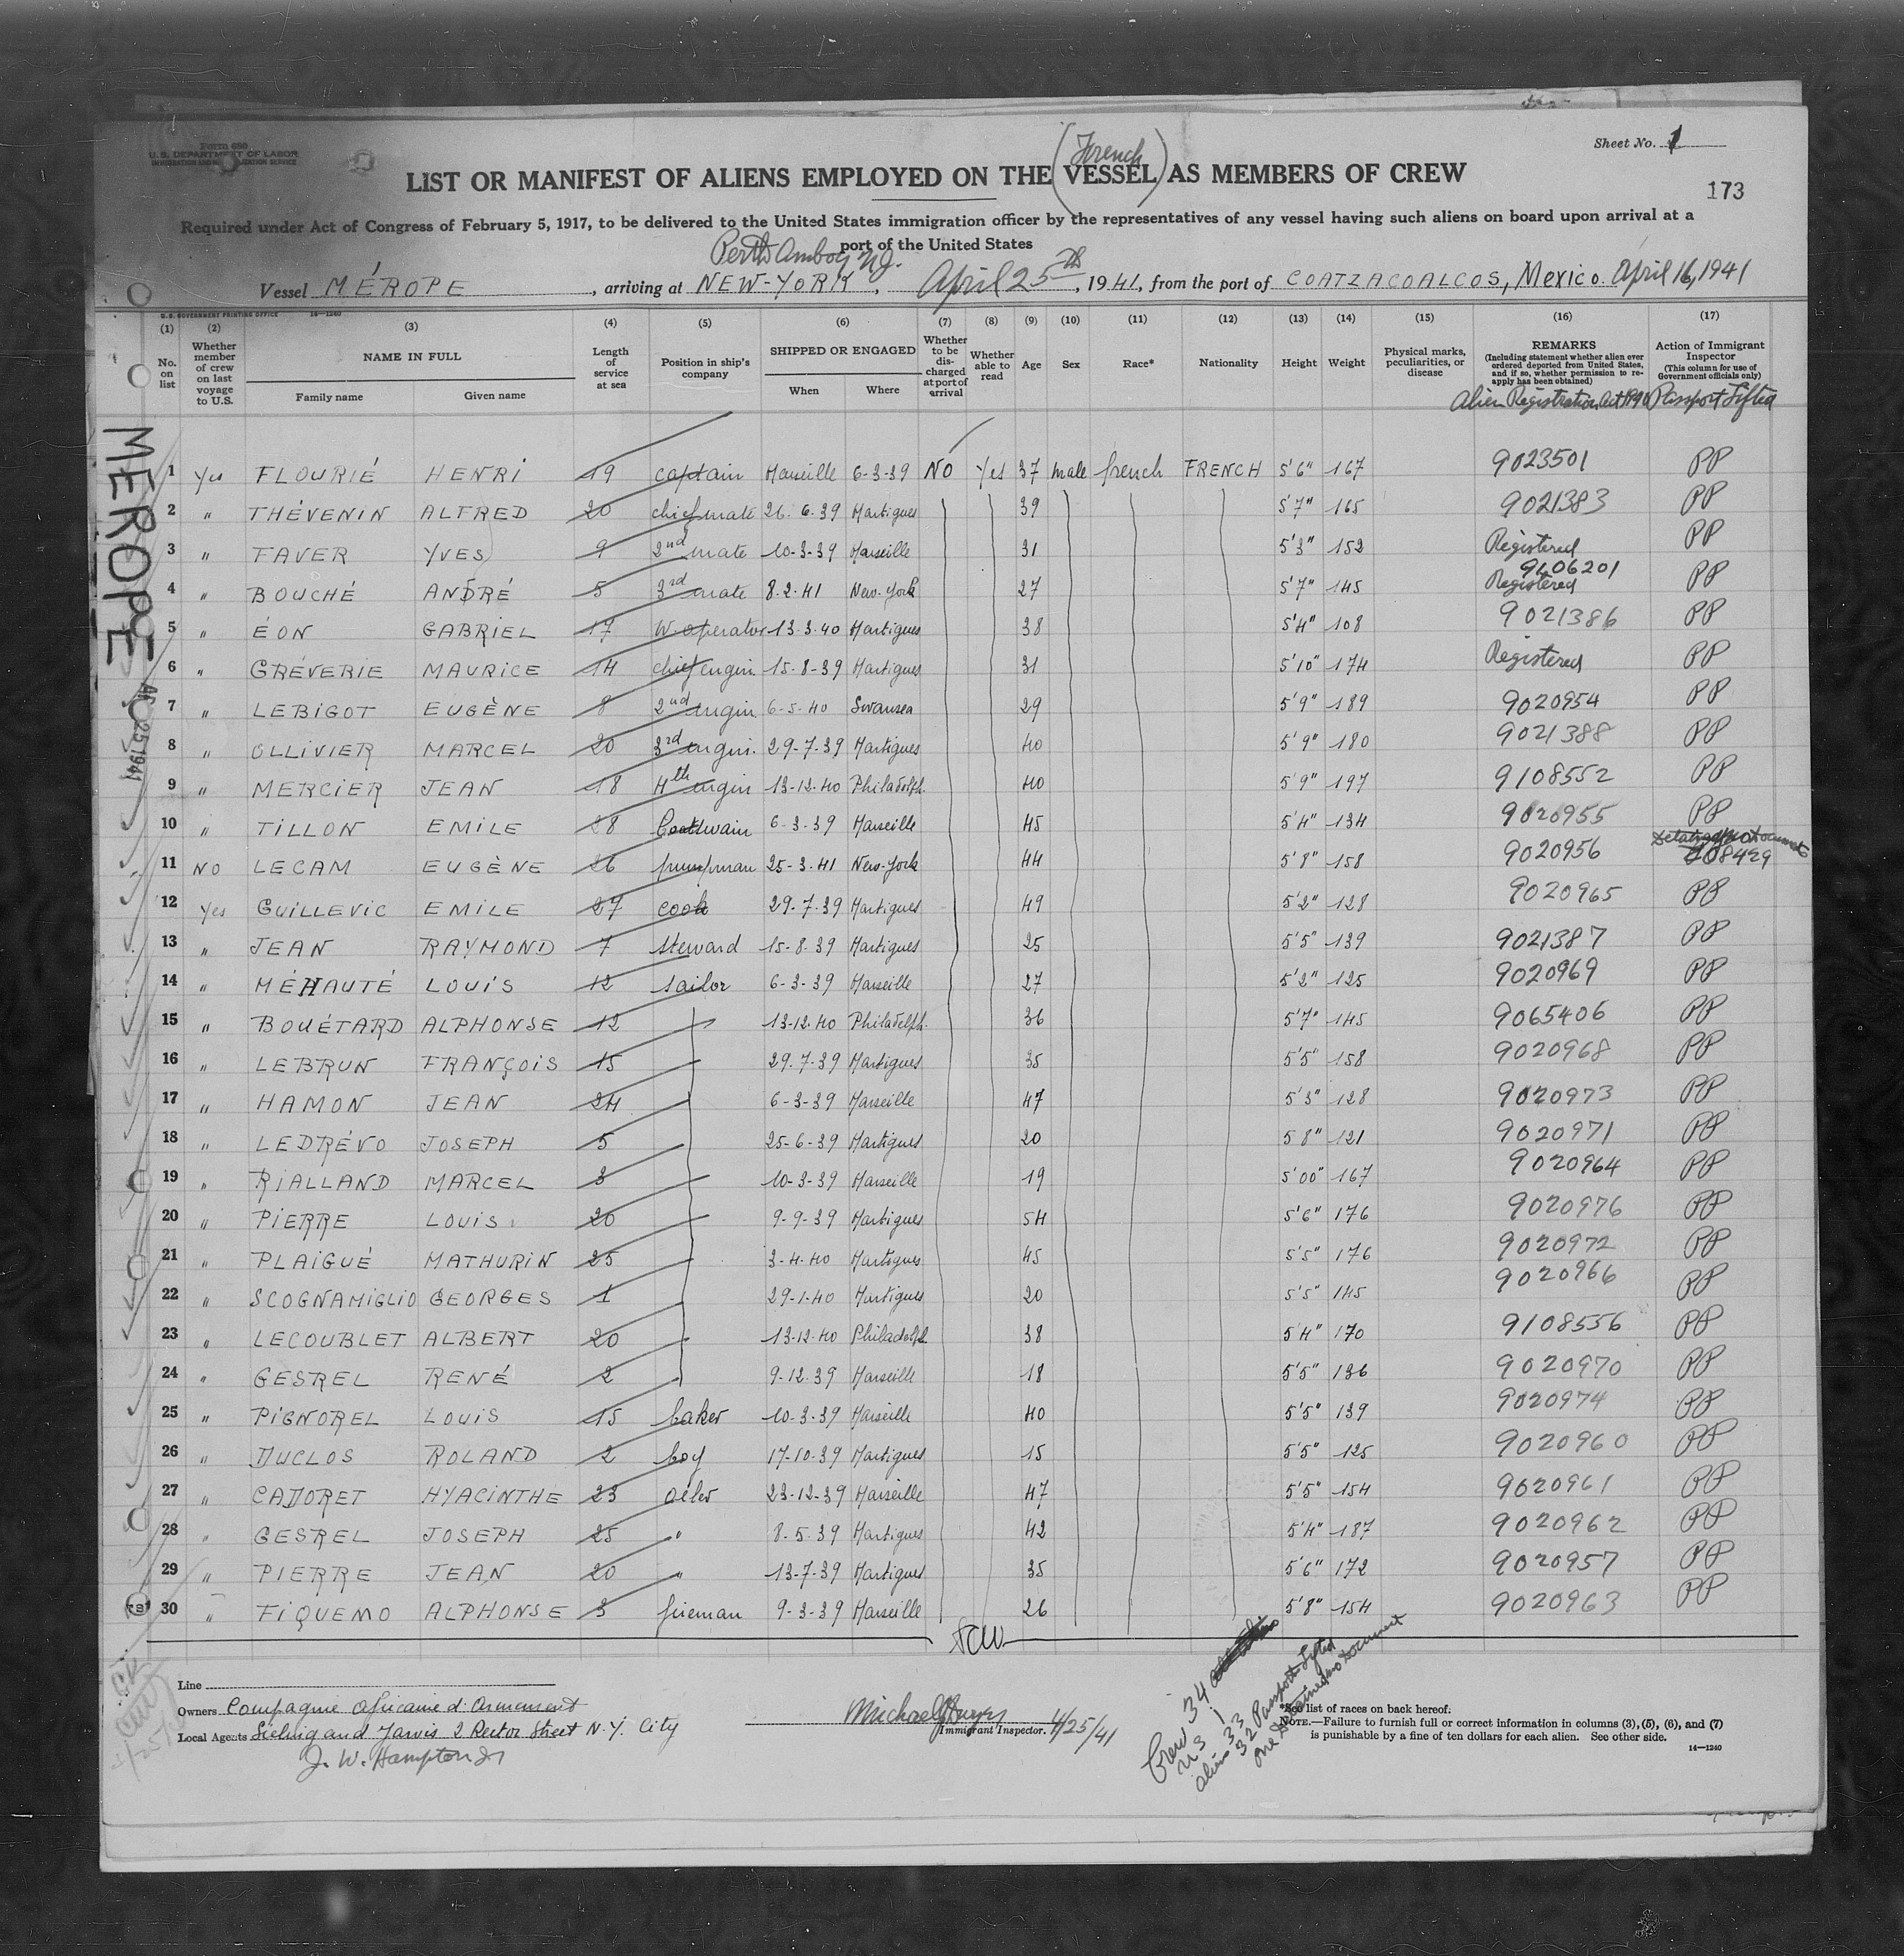 Form 680
U. S. DEPARTMENT OF LABOR
IMMIGRATION AND NATURALIZATION SERVICE
Sheet No. 1
(French)
LIST OR MANIFEST OF ALIENS EMPLOYED ON THE VESSEL AS MEMBERS OF CREW
173
Required under Act of Congress of February 5, 1917, to be delivered to the United States immigration officer by the representatives of any vessel having such aliens on board upon arrival at a
port of the United States
Perth Amboy NJ.
Vessel MÉROPE, arriving at NEW-YORK, April 25th, 1941, from the port of COATZACOALCOS, Mexico. April 16, 1941
U. S. GOVERNMENT PRINTING OFFICE 14—1240
(1) (2) (3) (4) (5) (6) (7) (8) (9) (10) (11) (12) (13) (14) (15) (16) (17)
No. on list
Whether member of crew on last voyage to U.S.
NAME IN FULL
Family name
Given name
Length of service at sea
Position in ship's company
SHIPPED OR ENGAGED
When
Where
Whether to be discharged at port of arrival
Whether able to read
Age
Sex
Race*
Nationality
Height
Weight
Physical marks, peculiarities, or disease
REMARKS
(Including statement whether alien ever ordered deported from United States, and if so, whether permission to reapply has been obtained)
Action of Immigrant Inspector
(This column for use of Government officials only)
Alien Registration Act 1940 Passport Lifted
MEROPE
25 1941
1 Yes FLOURIÉ HENRI 19 captain Marseille 6-3-39 NO Yes 37 male french FRENCH 5'6" 167 9023501 PP
2 " THÉVENIN ALFRED 20 chief mate 26.6.39 Martigues 39 5'7" 165 9021383 PP
3 " FAVER YVES 9 2nd mate 10-3-39 Marseille 31 5'3" 152 Registered PP
4 " BOUCHÉ ANDRÉ 5 3rd mate 8.2.41 New-York 27 5'7" 145 9406201 Registered PP
5 " ÉON GABRIEL 17 W. operator 13.3.40 Martigues 38 5'4" 108 9021386 PP
6 " GRÉVERIE MAURICE 14 chief engin. 15-8-39 Martigues 31 5'10" 174 Registered PP
7 " LEBIGOT EUGÈNE 8 2nd engin 6-5-40 Swansea 29 5'9" 189 9020954 PP
8 " OLLIVIER MARCEL 20 3rd engin. 29-7-39 Martigues 40 5'9" 180 9021388 PP
9 " MERCIER JEAN 18 4th engin 13-12-40 Philadelph. 40 5'9" 197 9108552 PP
10 " TILLON EMILE 28 Boatswain 6-3-39 Marseille 45 5'4" 134 9020955 PP
11 NO LECAM EUGÈNE 26 pumpman 25-3-41 New-York 44 5'8" 158 9020956 Detained no Document 908429
12 Yes GUILLEVIC EMILE 27 cook 29.7.39 Martigues 49 5'2" 128 9020965 PP
13 " JEAN RAYMOND 7 steward 15-8-39 Martigues 25 5'5" 139 9021387 PP
14 " MÉHAUTÉ LOUIS 12 sailor 6-3-39 Marseille 27 5'2" 125 9020969 PP
15 " BOUÉTARD ALPHONSE 12 13-12-40 Philadelph. 36 5'7" 145 9065406 PP
16 " LEBRUN FRANÇOIS 15 29.7-39 Martigues 35 5'5" 158 9020968 PP
17 " HAMON JEAN 24 6-3-39 Marseille 47 5'3" 128 9020973 PP
18 " LEDRÉVO JOSEPH 5 25-6-39 Martigues 20 5 8" 121 9020971 PP
19 " RIALLAND MARCEL 3 10-3-39 Marseille 19 5'00" 167 9020964 PP
20 " PIERRE LOUIS 20 9-9-39 Martigues 54 5'6" 176 9020976 PP
21 " PLAIGUÉ MATHURIN 25 3-4-40 Martigues 45 5'5" 176 9020972 PP
22 " SCOGNAMIGLIO GEORGES 1 29-1-40 Martigues 20 5'5" 145 9020966 PP
23 " LECOUBLET ALBERT 20 13-12-40 Philadelph 38 5'4" 170 9108556 PP
24 " GESREL RENÉ 2 9-12-39 Marseille 18 5'5" 136 9020970 PP
25 " PIGNOREL LOUIS 15 baker 10-3-39 Marseille 40 5'5" 139 9020974 PP
26 " DUCLOS ROLAND 2 boy 17-10-39 Martigues 15 5'5" 125 9020960 PP
27 " CADORET HYACINTHE 23 oiler 23-12-39 Marseille 47 5'5" 154 9020961 PP
28 " GESREL JOSEPH 25 " 8-5-39 Martigues 42 5'4" 187 9020962 PP
29 " PIERRE JEAN 20 " 13-7-39 Martigues 35 5'6" 172 9020957 PP
30 " FIQUEMO ALPHONSE 3 fireman 9-3-39 Marseille 26 5'8" 154 9020963 PP
Line
Owners Compagnie africaine d'armement
Local Agents Sieling and Jarvis 2 Rector Street N.Y. City
J. W. Hampton Jr
Immigrant Inspector. 4/25/41
Crew 34
US 1
alien 33
32 Passports Lifted
one Detained no Document
*See list of races on back hereof.
NOTE.—Failure to furnish full or correct information in columns (3), (5), (6), and (7)
is punishable by a fine of ten dollars for each alien. See other side.
14—1240